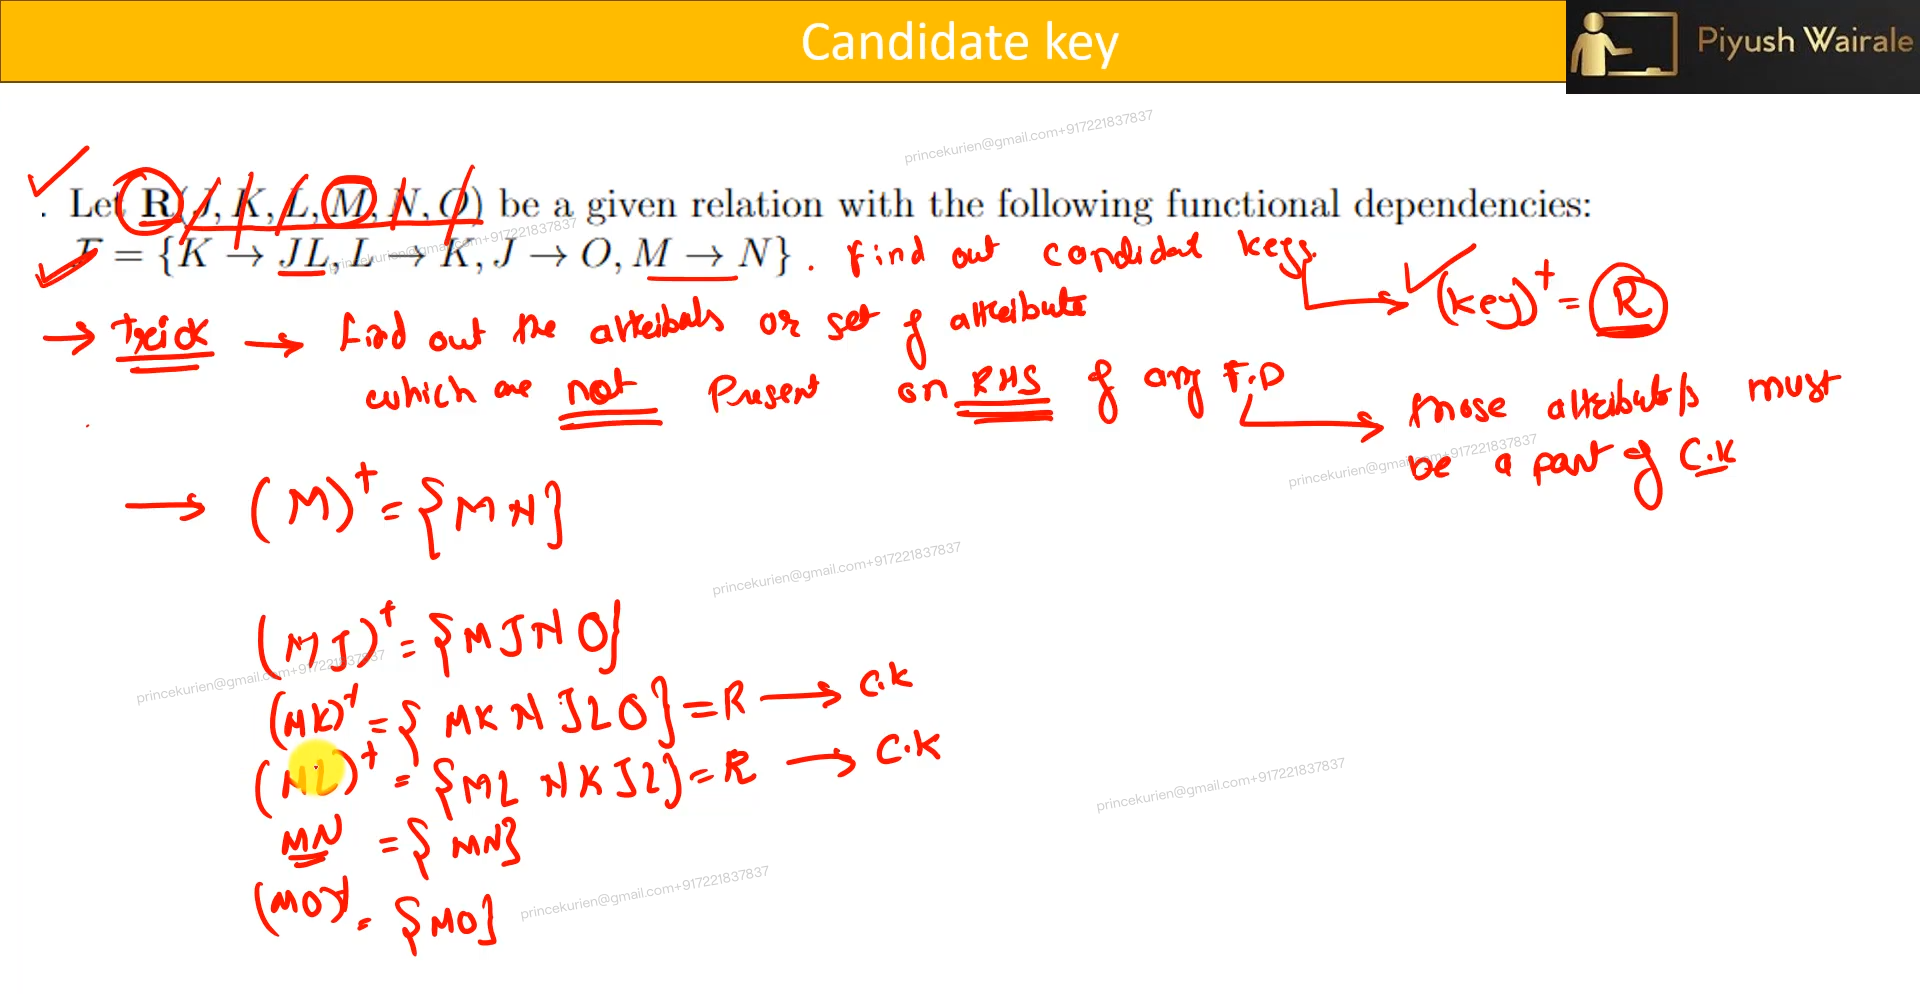 Candidate key
Piyush Wairale
princekurien@gmail.com+917221837837
. Let R(J, K, L, M, N, O) be a given relation with the following functional dependencies:
princekurien@gmail.com+917221837837
F = {K → JL, L → K, J → O, M → N} . Find out candidat keys.
(key)⁺ = R
→ Trick → Find out the attributs or set of attribute
which are not Present on RHS of any F.D
those attribute/s must
princekurien@gmail.com+917221837837
be a part of C.K
→ (M)⁺ = {M N}
princekurien@gmail.com+917221837837
(MJ)⁺ = {M J N O}
princekurien@gmail.com+917221837837
(MK)⁺ = { MK N J L O} = R → C.K
(ML)⁺ = {ML N K J L} = R → C.K
princekurien@gmail.com+917221837837
MN = { MN}
princekurien@gmail.com+917221837837
(MO)⁺ = {MO}